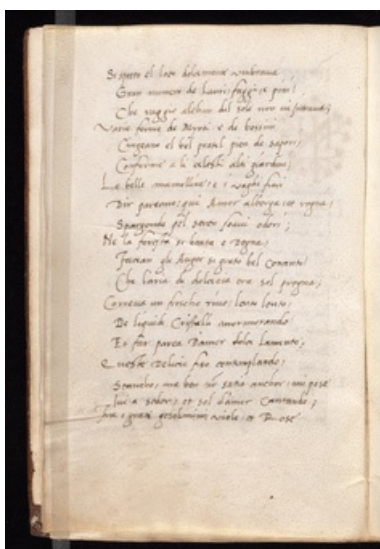 Si spesso el loco dolcemente umbrava
Gran numero de Lauri, faggi, e pini
Che raggio alchun del sole non in
Varie forme de Myrti e de bossini
Cingeano el bel pratel pien de sapori
Conforme a li celesti alti giardini
Le belle e i vaghi fiori
Dir pareano: qui Amor alberga et regna
Spargendo pel seren soavi odori;
Ne la foresta si e degna
Facean gli Augei si grato bel
Che laria di dolcezza era sol pregna;
Correva un frescho rivo lento lento
De liquidi Cristalli mormorando
Et far parea Damor dolce lamento,
Queste Delicie fiso contemplando,
Stancho, ma ben nō satio anchor, mi pose
Ivi a seder, et sol damor Cantando;
Fra i grati gesolmini viole, et Rose